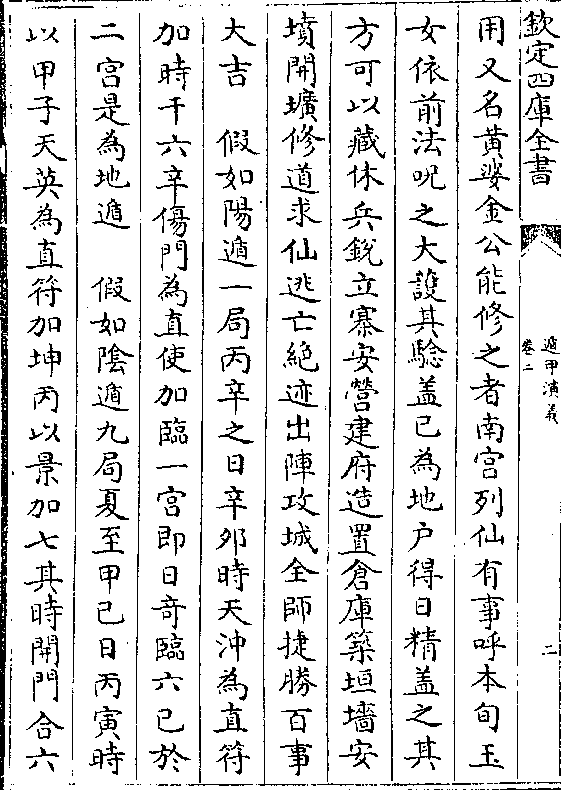 欽定四庫全書
遁甲演義
卷二
二
用又名黄婆金公能修之者南宫列仙有事呼本旬玉
女依前法呪之大護其騐盖已為地户得日精盖之其
方可以藏休兵銳立寨安營建府造置倉庫築垣墻安
墳開壙修道求仙逃亡絶迹出陣攻城全師捷勝百事
大吉　假如陽遁一局丙辛之日辛夘時天沖為直符
加時干六辛傷門為直使加臨一宫即日奇臨六已於
二宫是為地遁　假如陰遁九局夏至甲已日丙寅時
以甲子天英為直符加坤丙以景加七其時開門合六